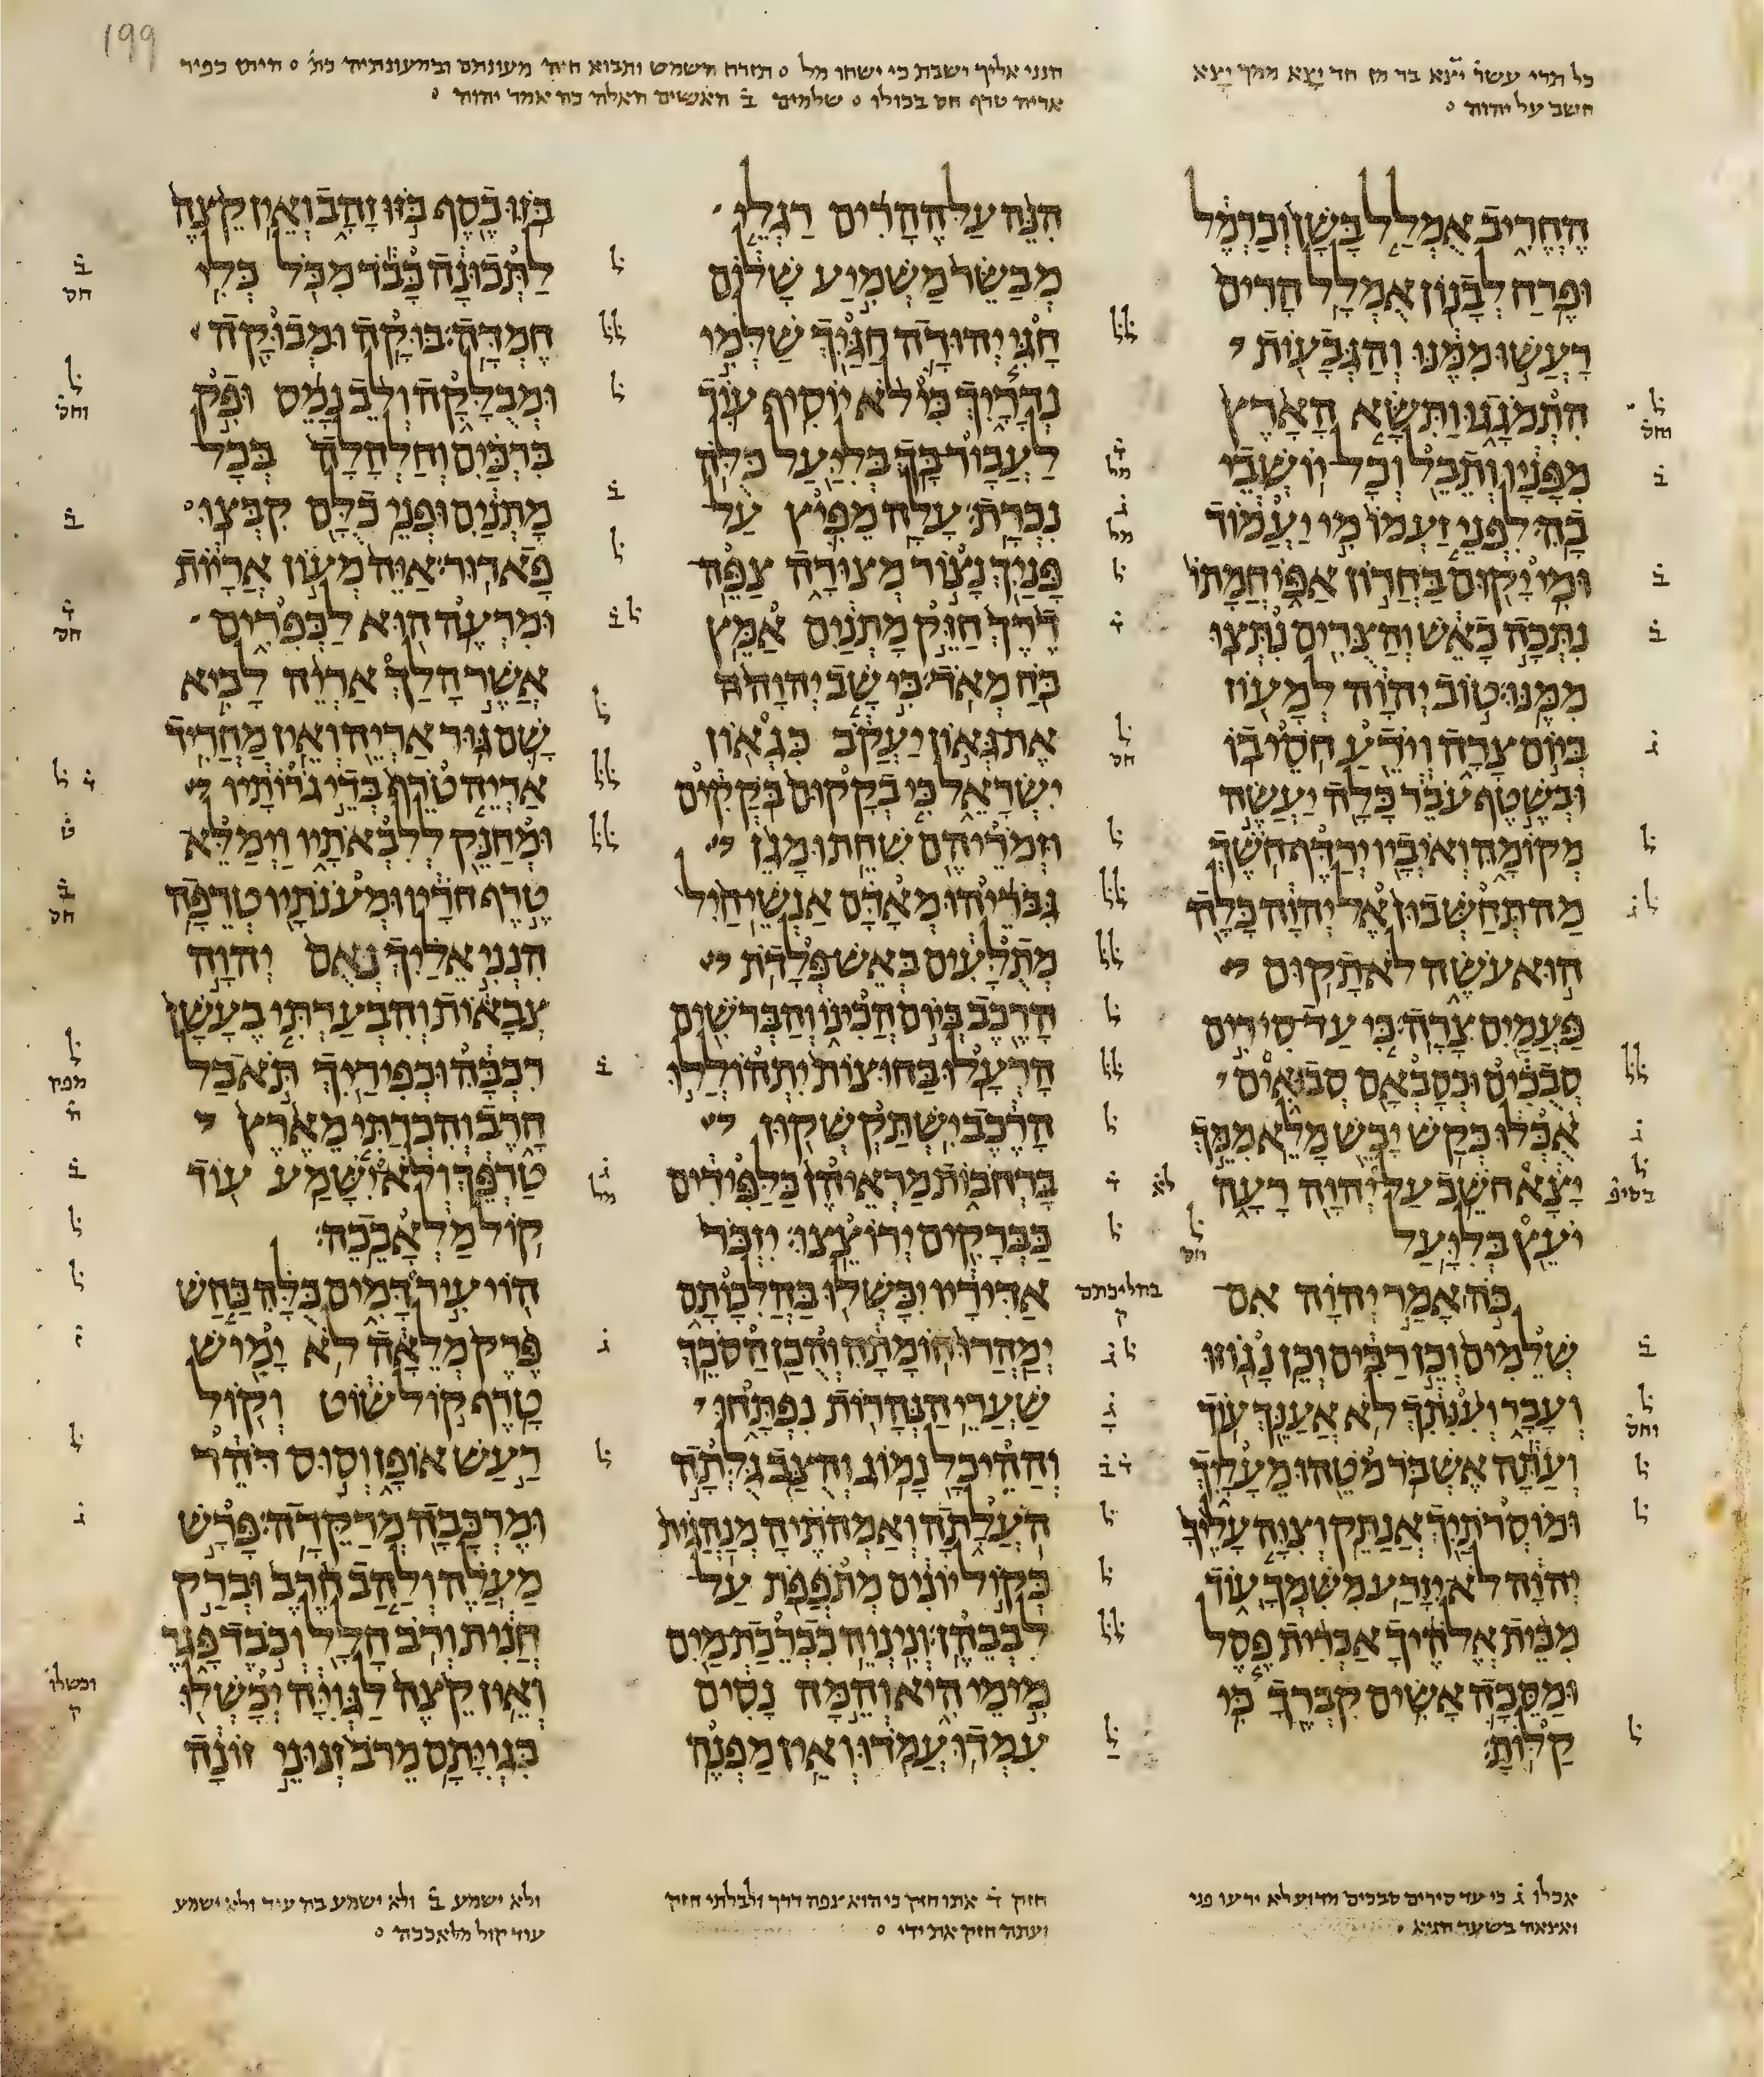 199
כל תרי עשר יצא בר מן חד יצא ממך יצא
חשב על יהוה
הנני אליך ישבת כי ישחו מל ○ תזרח השמש ותבוא חיה מעונתם ובמעונתיה כת ○ חיתו כפיר
אריה טרף חס בכולו ○ שלמים ב האנשים האלה כה אמר יהוה ○
החריב אמלל בשן וכרמל
ופרח לבנון אמלל הרים
רעשו ממנו והגבעות
התמגגו ותשא הארץ
מפניו ותבל וכל יושבי
בה לפני זעמו מי יעמוד
ומי יקום בחרון אפו חמתו
נתכה כאש והצרים נתצו
ממנו טוב יהוה למעוז
ביום צרה וידע חסי בו
ובשטף עבר כלה יעשה
מקומה ואיביו ירדף חשך
מה תחשבון אל יהוה כלה
הוא עשה לא תקום
פעמים צרה כי עד סירים
סבכים וכסבאם סבואים
אכלו כקש יבש מלא ממך
יצא חשב על יהוה רעה
יעץ בליעל
כה אמר יהוה אם
שלמים וכן רבים וכן נגוזו
ועבר וענתך לא אענך עוד
ועתה אשבר מטהו מעליך
ומוסרתיך אנתק וצוה עליך
יהוה לא יזרע משמך עוד
מבית אלהיך אכרית פסל
ומסכה אשים קברך כי
קלות
הנה על ההרים רגלי
מבשר משמיע שלום
חגי יהודה חגיך שלמי
נדריך כי לא יוסיף עוד
לעבור בך בליעל כלה
נכרת עלה מפיץ על
פניך נצור מצורה צפה
דרך חזק מתנים אמץ
כח מאד כי שב יהוה
את גאון יעקב כגאון
ישראל כי בקקום בקקים
וזמריהם שחתו מגן
גבריהו מאדם אנשי חיל
מתלעים באש פלדת
הרכב ביום הכינו והברשים
הרעלו בחוצות יתהוללו
הרכב ישתקשקון
ברחבות מראיהן כלפידים
כברקים ירוצצו יזכר
אדיריו יכשלו בהלכותם
ימהרו חומתה והכן הסכך
שערי הנהרות נפתחו
וההיכל נמוג והצב גלתה
העלתה ואמהתיה מנהגות
כקול יונים מתפפת על
לבבהן ונינוה כברכת מים
מימי היא והמה נסים
עמדו עמדו ואין מפנה
בזו כסף בזו זהב ואין קצה
לתכונה כבד מכל כלי
חמדה בוקה ומבוקה
ומבלקה ולב נמס ופק
ברכים וחלחלה בכל
מתנים ופני כלם קבצו
פארור איה מעון אריות
ומרעה הוא לכפרים
אשר הלך אריה לביא
שם גור אריה ואין מחריד
אריה טרף בדי גרותיו
ומחנק ללבאתיו וימלא
טרף חריו ומענתיו טרפה
הנני אליך נאם יהוה
צבאות והבערתי בעשן
רכבה וכפיריך תאכל
חרב והכרתי מארץ
טרפך ולא ישמע עוד
קול מלאככה
הוי עיר דמים כלה כחש
פרק מלאה לא ימיש
טרף קול שוט וקול
רעש אופן וסוס דהר
ומרכבה מרקדה פרש
מעלה ולהב חרב וברק
חנית ורב חלל וכבד פגר
ואין קצה לגויה יכשלו
בגויתם מרב זנוני זונה
אכלו ג כי עד סירים סבכים מדוע לא ידעו פני
חזק ד אתו חזק כי הוא צפה דרך ולבלתי חזק
ועתה חזק את ידי ○
ולא ישמע ב ולא ישמע בה עוד ולא ישמע
עוד קול מלאככה ○